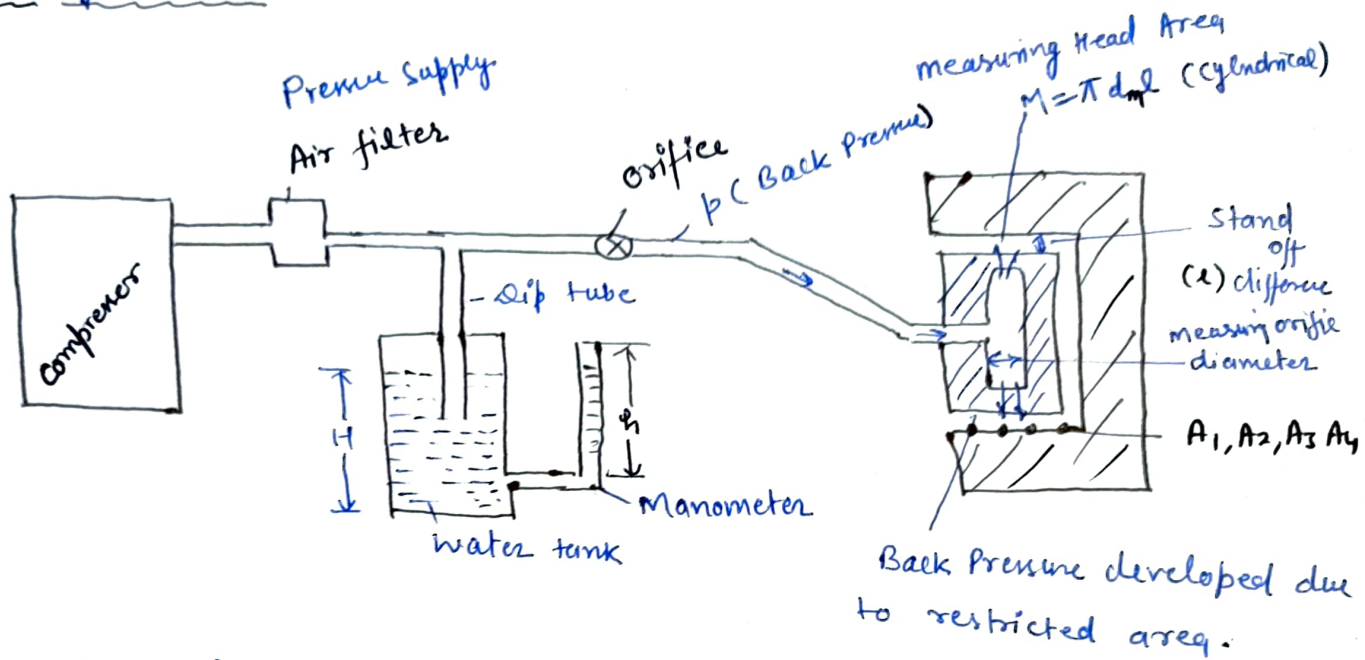 Pressure Supply
Air filter
Compresser
orifice
p (Back Pressure)
measuring Head Area
M = π dml (Cylindrical)
Stand
off
(l) differene
measuring orifie
diameter
- Dip tube
H
h
Manometer
water tank
A1, A2, A3 A4
Back Pressure developed due
to restricted area.